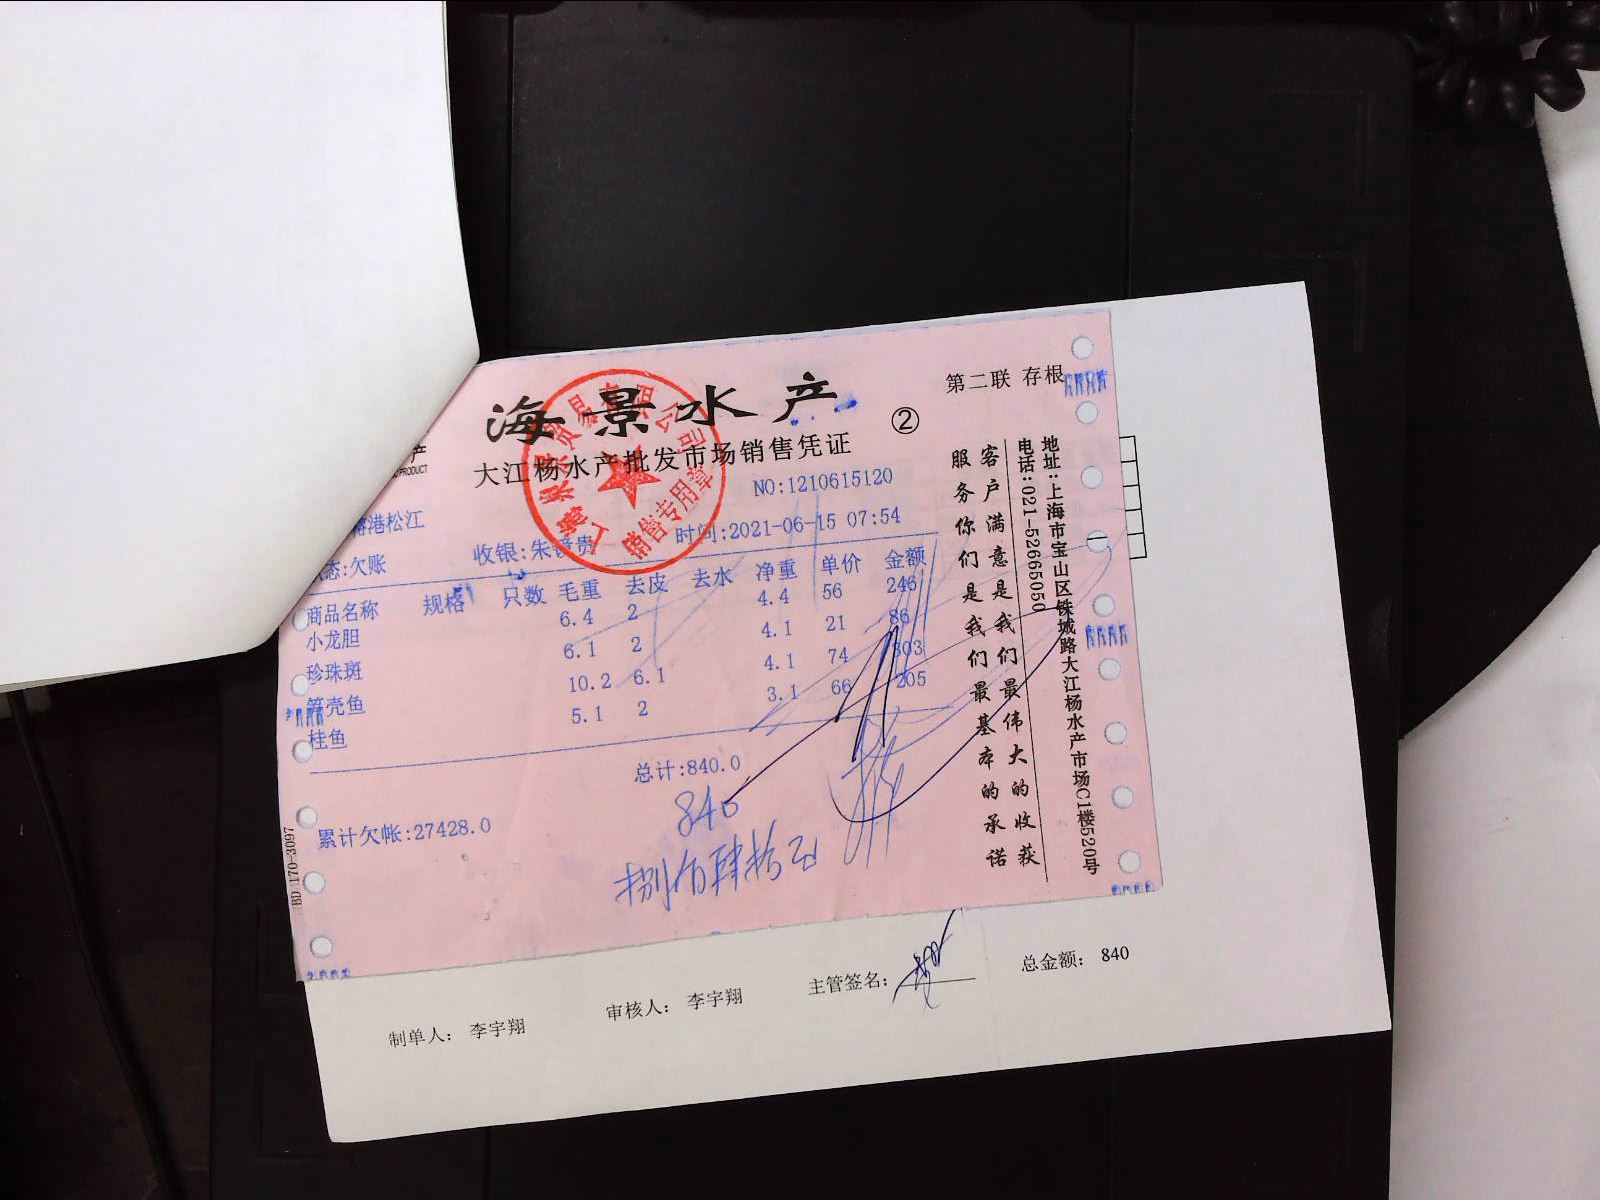 海景水产
大江杨水产批发市场销售凭证
②
第二联 存根
产
PRODUCT
NO:1210615120
港松江
态:欠账
收银:朱镜贵
时间:2021-06-15 07:54
商品名称 规格 只数 毛重 去皮 去水 净重 单价 金额
小龙胆 6.4 2 4.4 56 246
珍珠斑 6.1 2 4.1 21 86
笋壳鱼 10.2 6.1 4.1 74 303
桂鱼 5.1 2 3.1 66 205
总计:840.0
840
捌佰肆拾元
累计欠帐:27428.0
BD 170-3097
客户满意是我们最伟大的收获
服务你们是我们最基本的承诺
地址:上海市宝山区铁城路大江杨水产市场C1楼520号
电话:021-52665050
销售专用章
制单人: 李宇翔
审核人: 李宇翔
主管签名:
总金额: 840